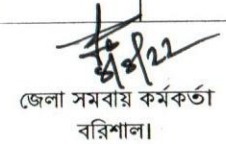 জেলা সমবায় কর্মকর্তা
বরিশাল।